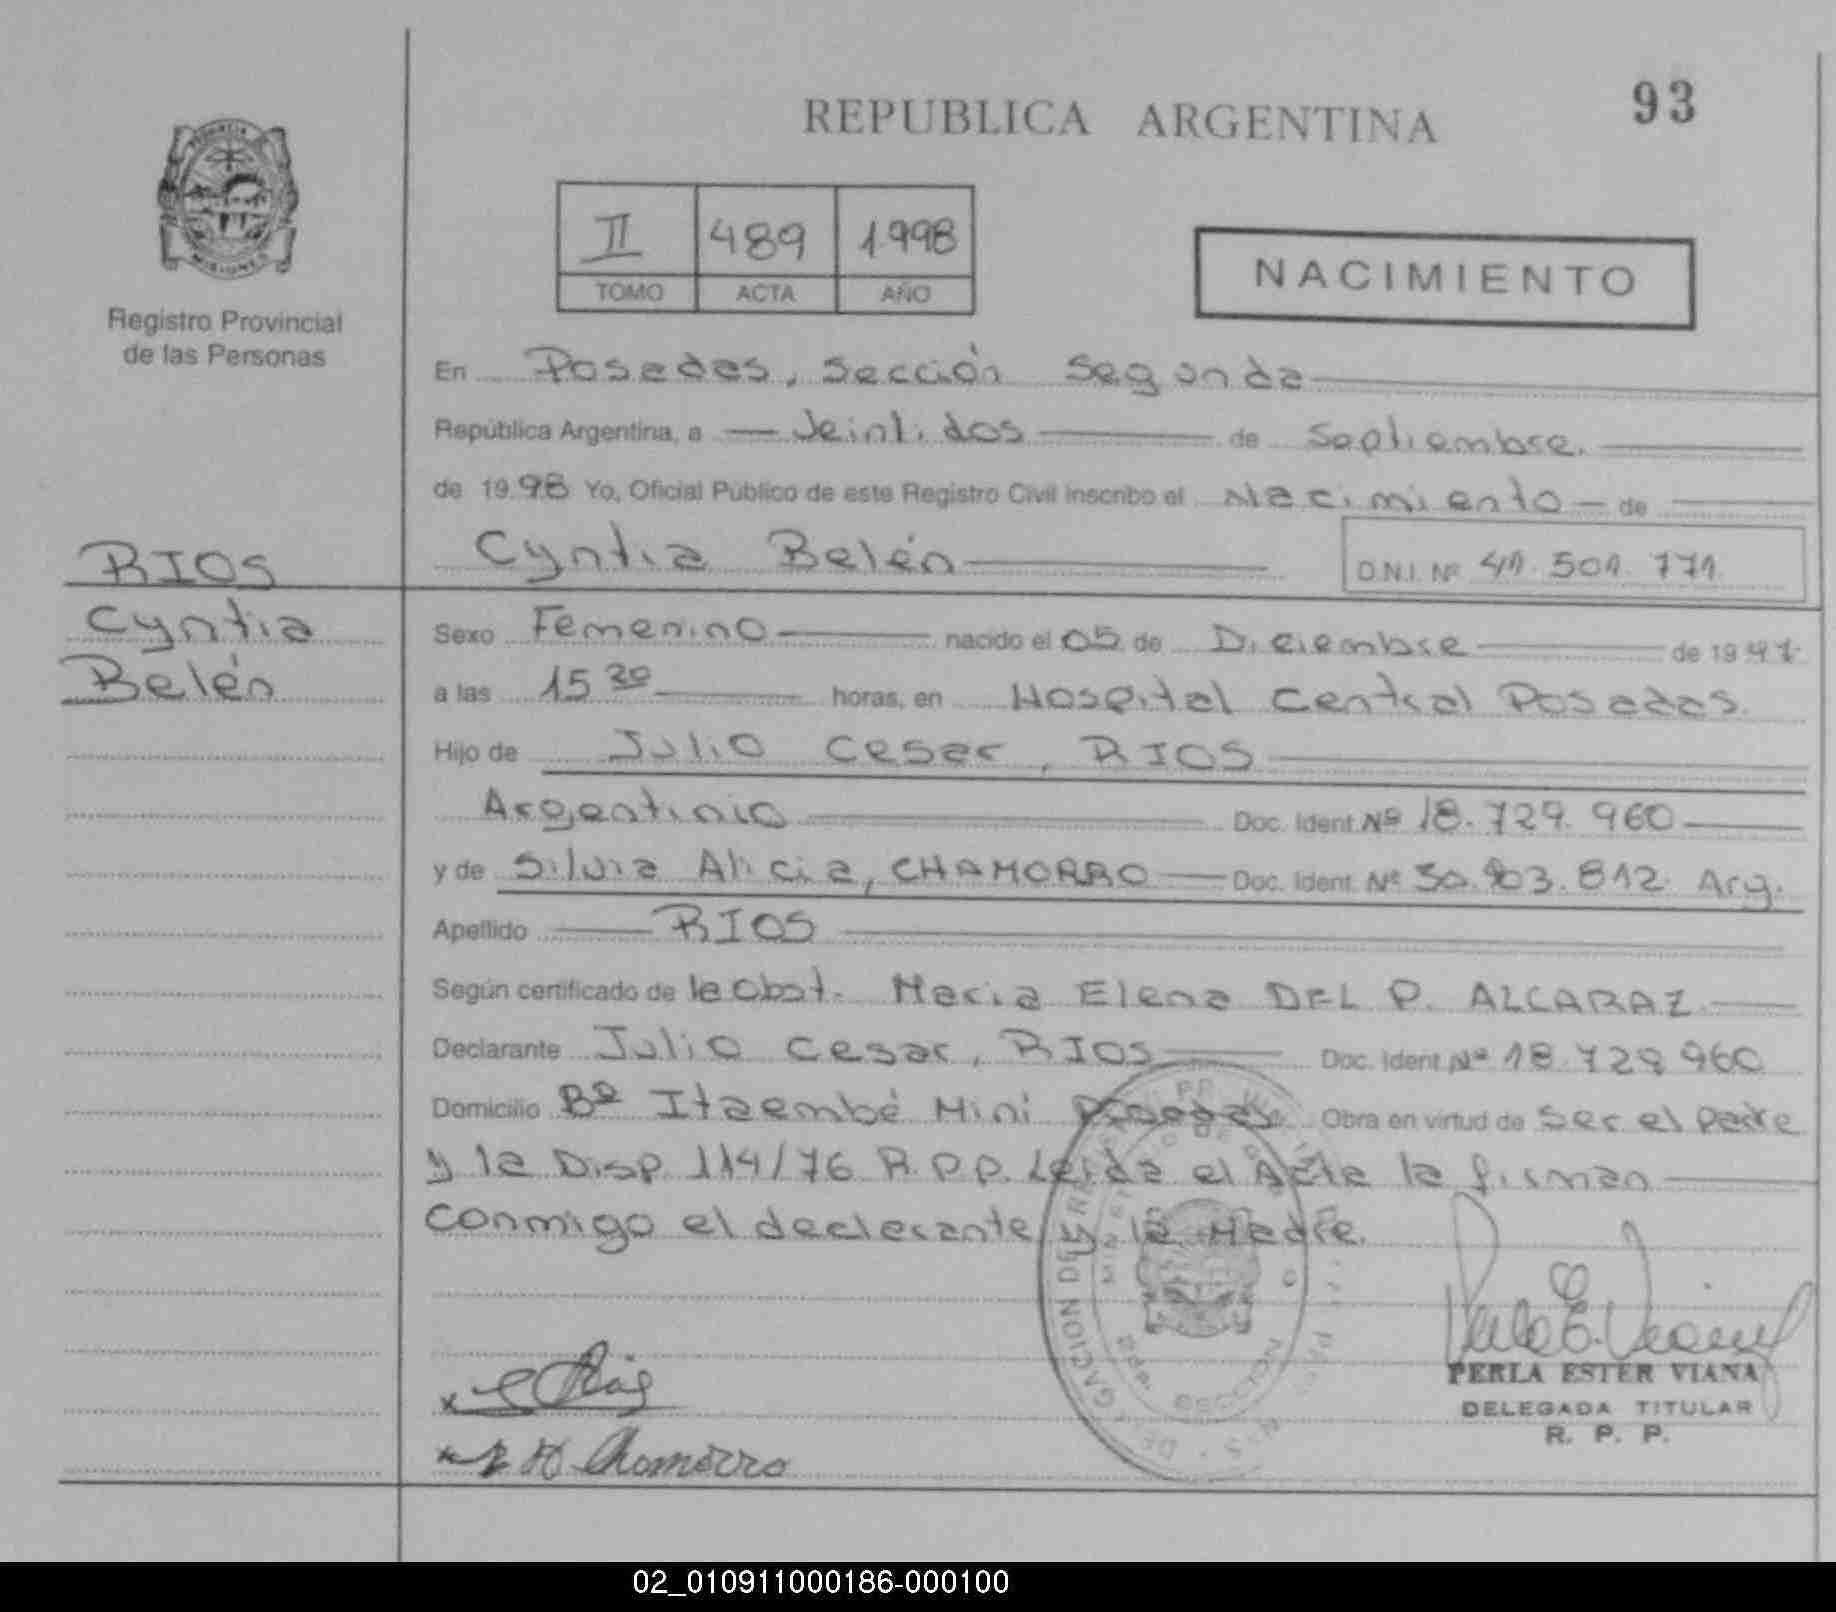 REPUBLICA ARGENTINA
93
MISIONES
Registro Provincial
de las Personas
II 489 1998
TOMO ACTA AÑO
NACIMIENTO
En Posadas, Sección Segunda
República Argentina, a Veintidos de Septiembre.
de 1998 Yo, Oficial Público de este Registro Civil inscribo el Nacimiento de
RIOS
Cyntia Belén
D.N.I. Nº 41.501.771
Cyntia
Belén
Sexo Femenino nacido el 05 de Diciembre de 1997
a las 15 30 horas, en Hospital Central Posadas.
Hijo de Julio Cesar, RIOS
Argentino Doc. Ident. Nº 18.729.960
y de Silvia Alicia, CHAMORRO Doc. Ident. Nº Arg.
Apellido RIOS
Según certificado de la Obst. Maria Elena DEL P. ALCARAZ
Declarante Julio Cesar, RIOS Doc. Ident. Nº 18.729.960
Domicilio Bº Itaembé Mini Posadas Obra en virtud de ser el Padre
y la Disp. 114/76 R.P.P. Leida el Acta la firman
conmigo el declarante y la Madre.
PERLA ESTER VIANA
DELEGADA TITULAR
R. P. P.
x Rios
x Chamorro
02_010911000186-000100